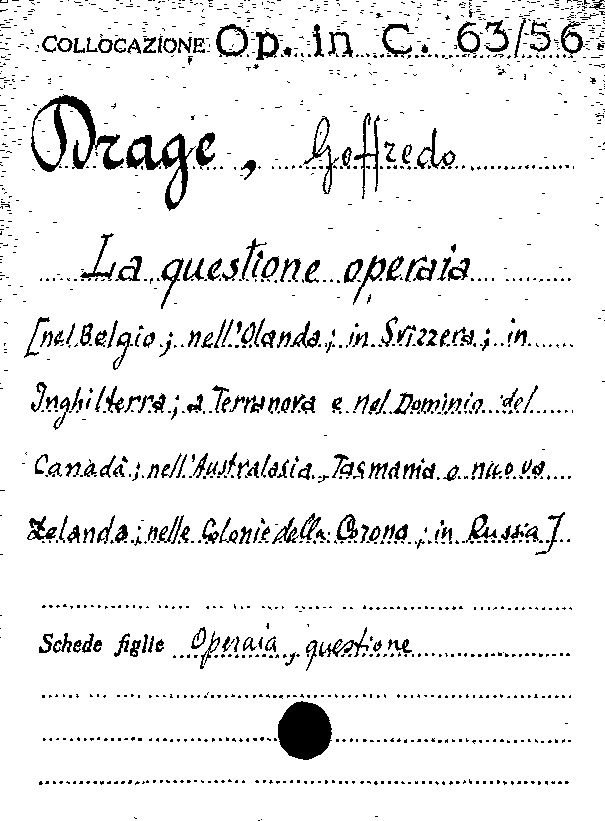 COLLOCAZIONE Op. in C. 63/56
Drage, Goffredo
La questione operaia
[nel Belgio; nell'Olanda; in Svizzera; in
Inghilterra; a Terranova e nel Dominio del
Canadà; nell'Australasia, Tasmania o nuova
Zelanda; nelle Colonie della Corona; in Russia]
Schede figlie Operaia, questione